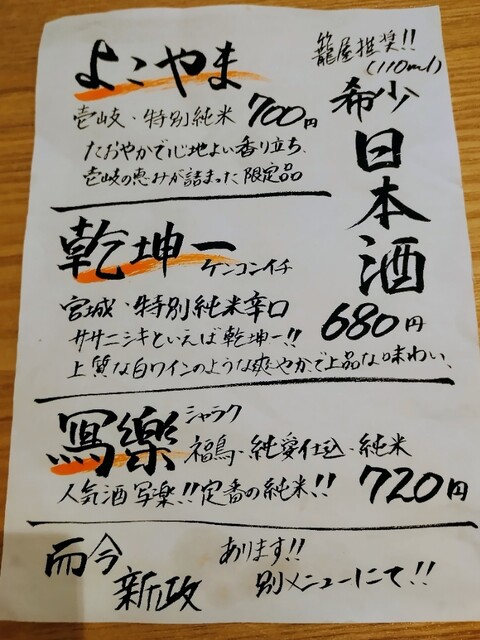 籠屋推奨!!
(110ml)
希少
日本酒
よこやま
壱岐・特別純米 700円
たおやかで心地よい香り立ち、
壱岐の恵みが詰まった限定品
乾坤一
ケンコンイチ
宮城・特別純米辛口 680円
ササニシキといえば乾坤一!!
上質な白ワインのような爽やかで上品な味わい、
冩樂
シャラク
福島・純愛仕込・純米
人気酒写楽!!定番の純米!! 720円
而今
新政
あります!!
別メニューにて!!